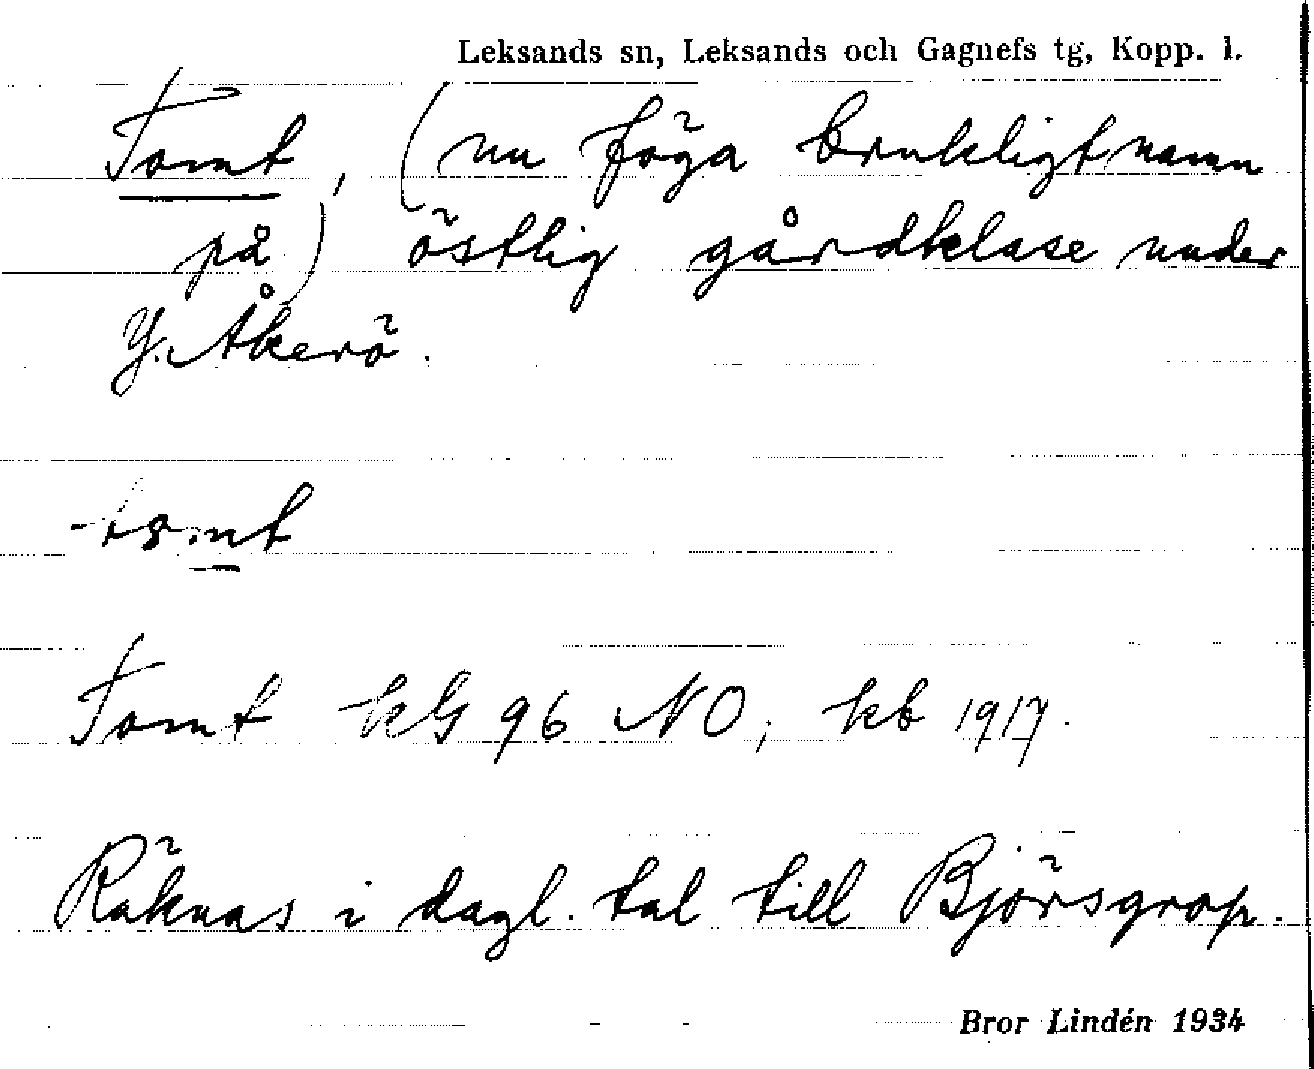 Leksands sn, Leksands och Gagnefs tg, Kopp. l.
Tomt, (nu föga brukligt namn
på) östlig gårdklase under
Y. Åkerö.
tomt
Tomt kG 96 NO; kb 1917.
Räknas i dagl. tal till Björsgrop.
Bror Lindén 1934